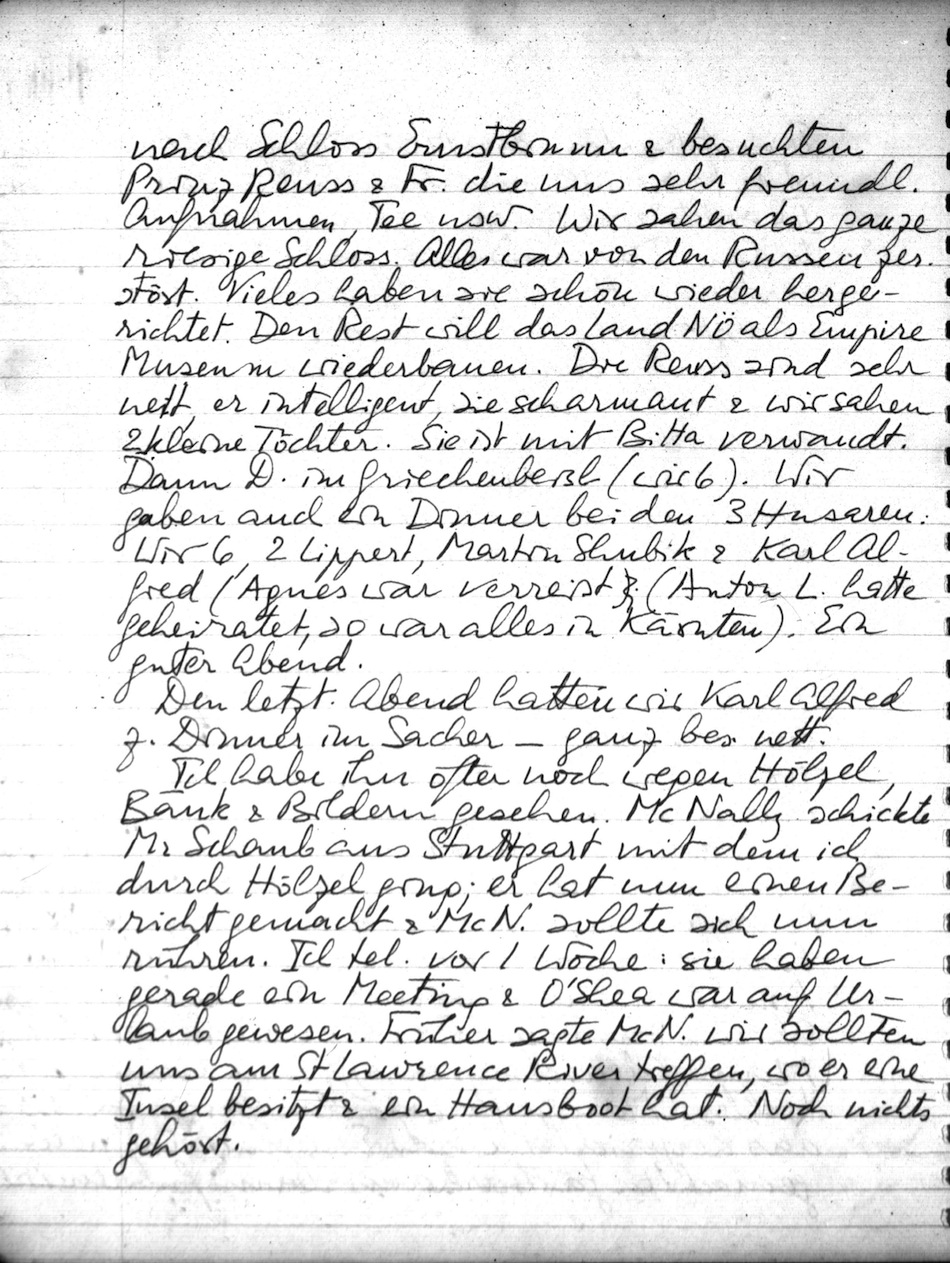 nach Schloss Ernstbrunn & besuchten
Prinz Reuss & Fr. die uns sehr freundl.
Aufnahmen, Tee usw. Wir sahen das ganze
riesige Schloss. Alles war von den Russen zer-
stört. Vieles haben sie schon wieder herge-
richtet. Den Rest will das Land NÖ als Empire
Museum wiederbauen. Die Reuss sind sehr
nett, er intelligent, sie scharmant & wir sahen
2 kleine Töchter. Sie ist mit Bitta verwandt.
Dann D. im Griechenbeisl (wir 6). Wir
gaben auch ein Dinner bei den 3 Husaren:
Wir 6, 2 Lippert, Martin Shubik & Karl Al-
fred (Agnes war verreist). (Anton L. hatte
geheiratet, so war alles in Kärnten). Ein
guter Abend.
Den letzt. Abend hatten wir Karl Alfred
z. Dinner im Sacher – ganz bes. nett.
Ich habe ihn öfter noch wegen Hölzel,
Bank & Bildern gesehen. McNally schickte
Mr Schaub aus Stuttgart mit dem ich
durch Hölzel ging; er hat nun einen Be-
richt gemacht & McN. sollte sich nun
rühren. Ich tel. vor 1 Woche: sie haben
gerade ein Meeting & O'Shea war auf Ur-
laub gewesen. Früher sagte McN. wir sollten
uns am St Lawrence River treffen, wo er eine
Insel besitzt & ein Hausboot hat. Noch nichts
gehört.